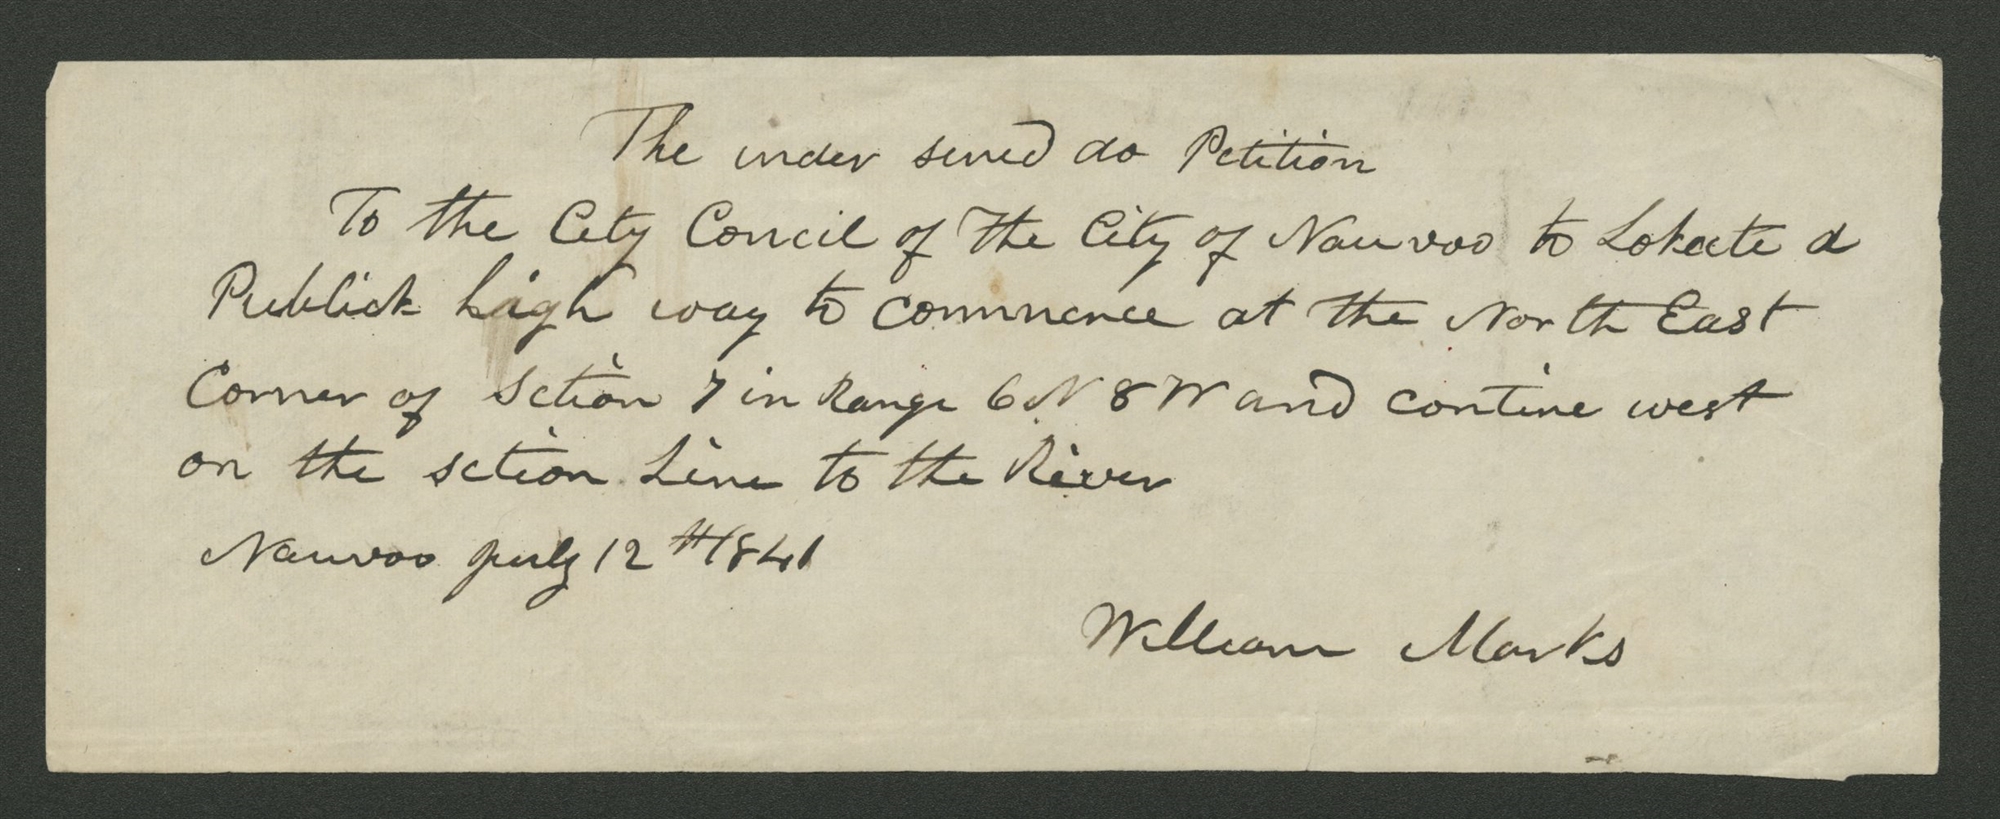 The under sined do Petition
To the City Concil of the City of Nauvoo to Lokate a
Publick high way to commence at the North East
Corner of Sction 7 in Range 6 N 8 W and contine west
on the sction Line to the River
Nauvoo july 12th 1841
William Marks